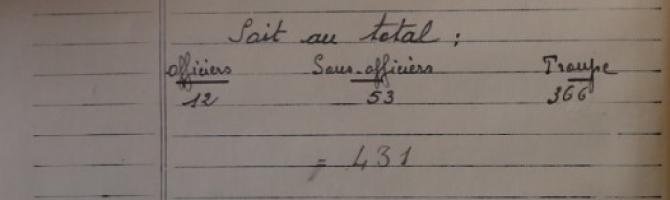 Soit au total :
officiers Sous-officiers Troupe
12 53 366
= 431